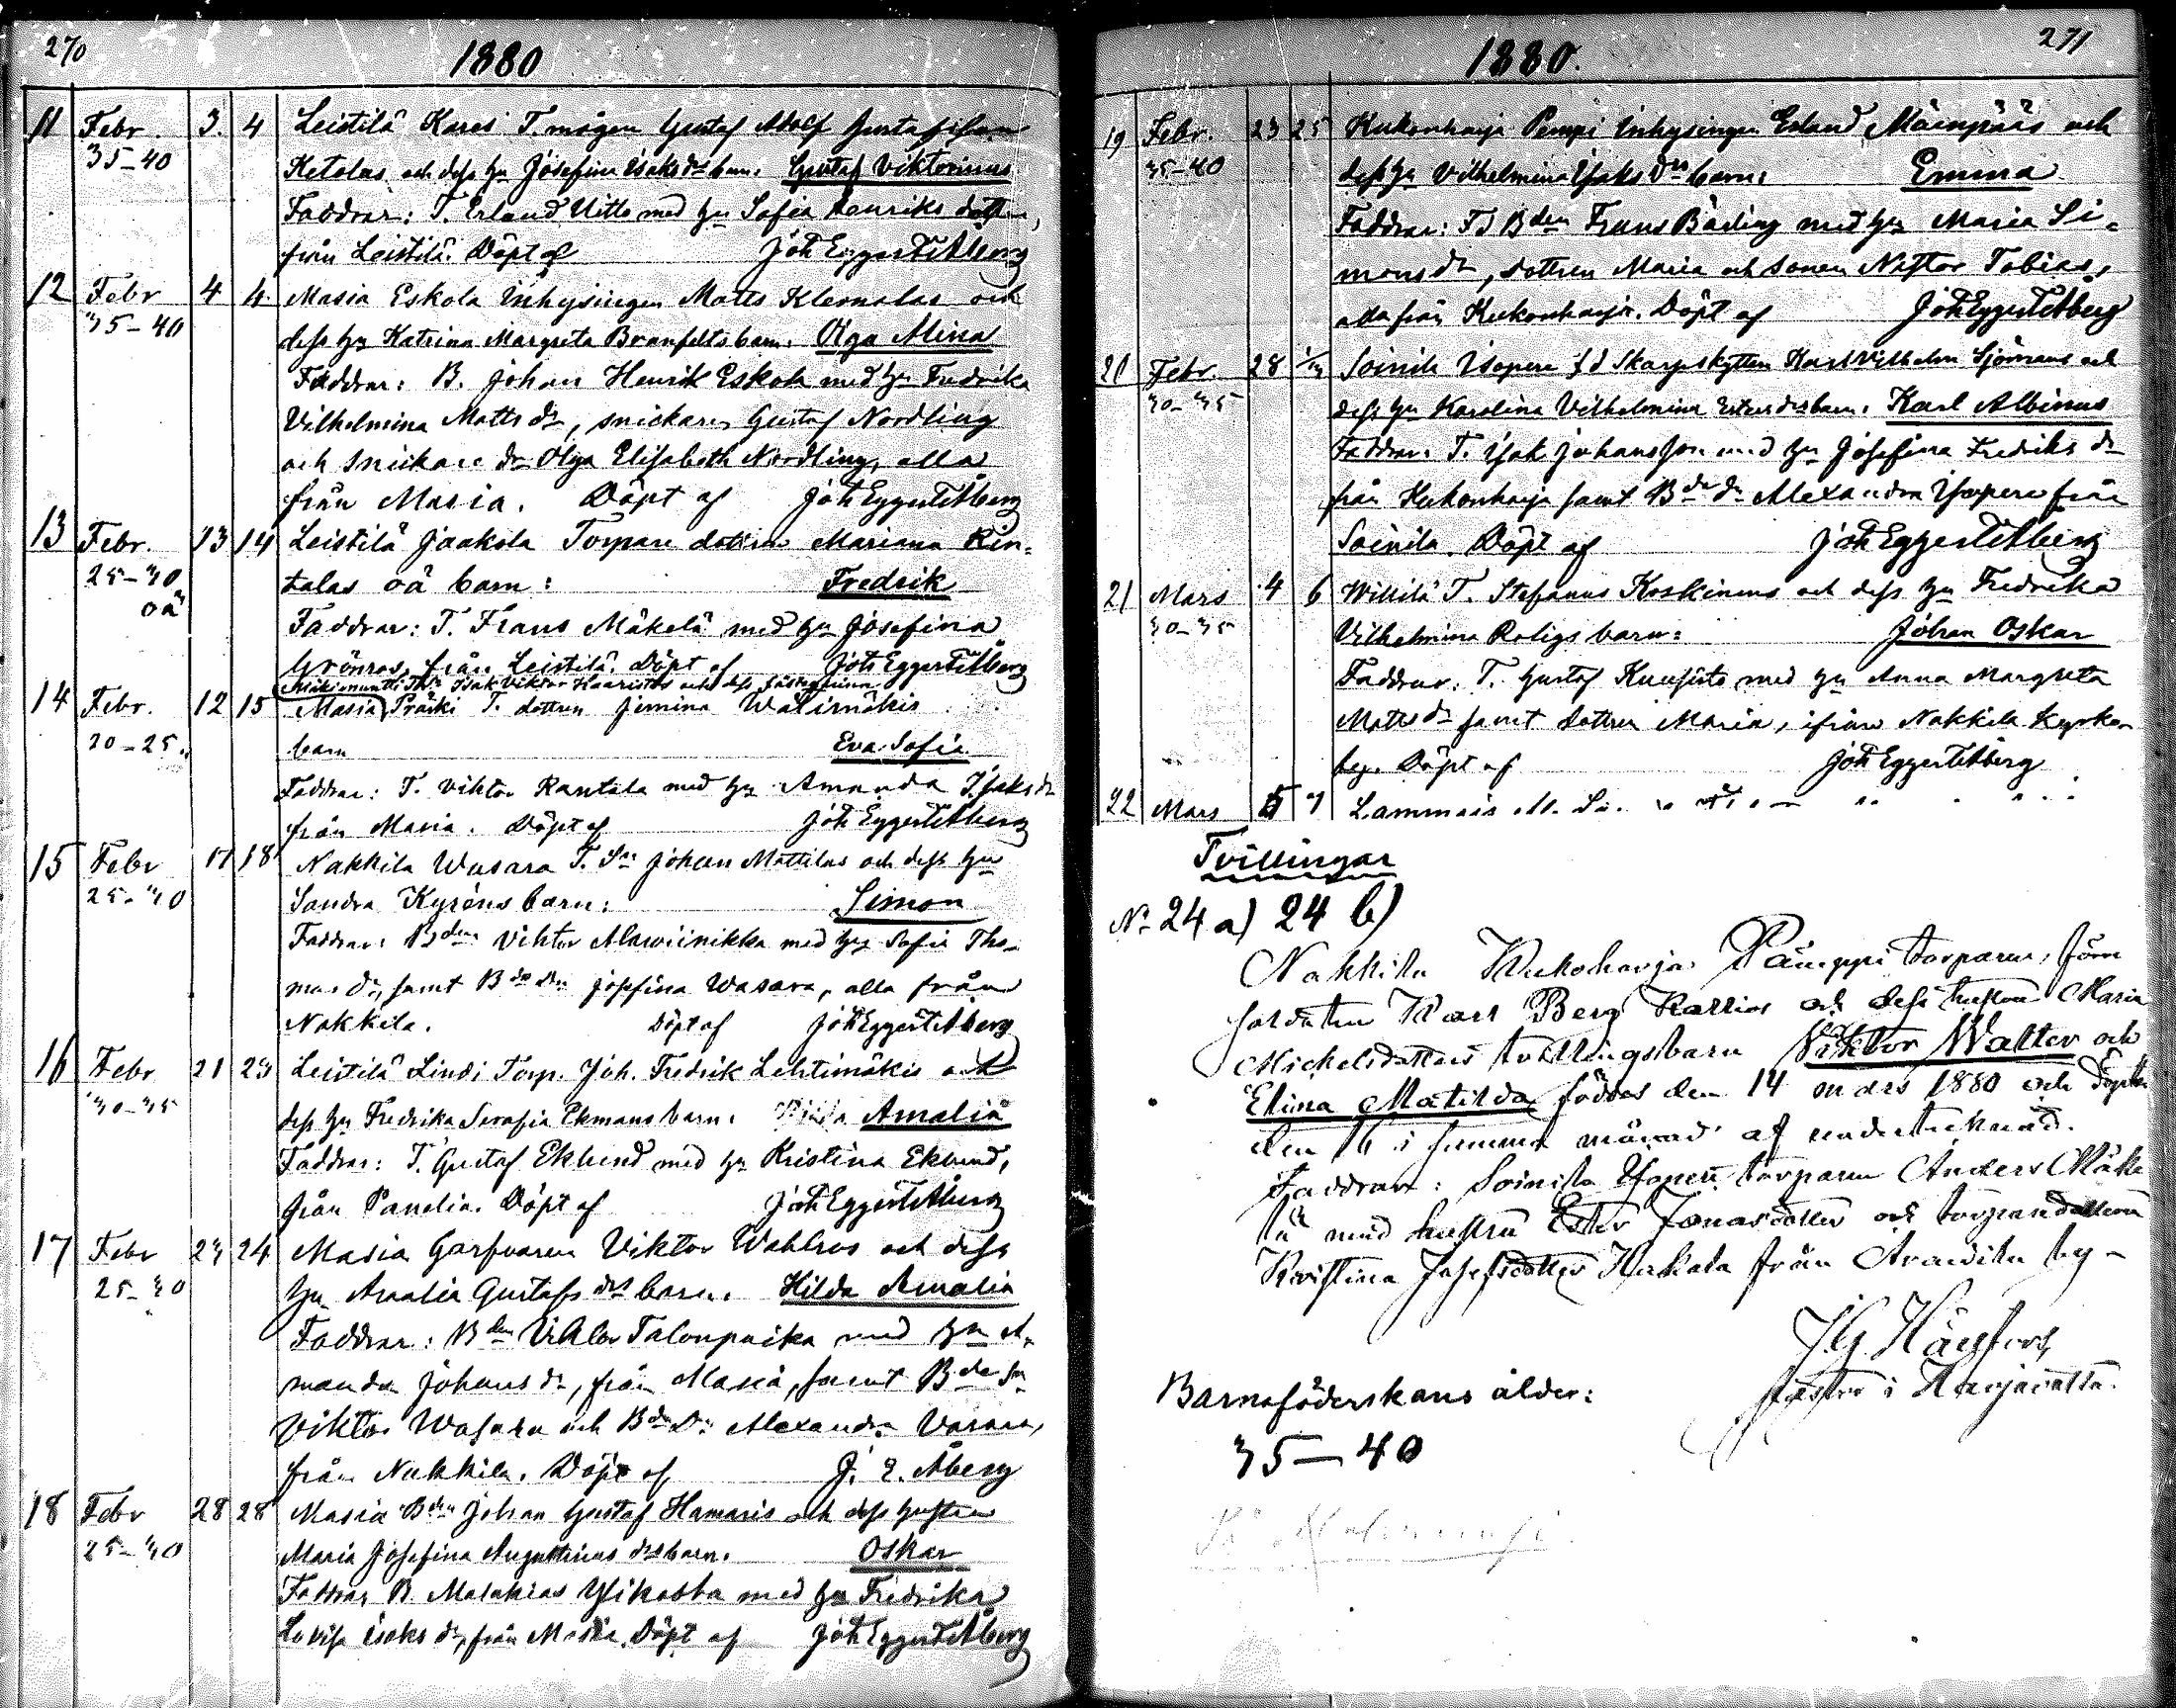 270
1880
11 Febr. 3. 4 Leistilä Kares T. mågen Gustaf Adolf Gustafsson
35-40 Ketolas och dess hu Josefina Isaksdrs barn. Gustaf Viktorinus
Faddrar: T. Erland Uitto med hu Sofia Henriks dotter,
från Leistilä. Döpt af Joh Eggert Åberg
12 Febr 4 4 Masia Eskola Inhysingen Matts Klemolas och
35-40 dess hu Katrina Margreta Branfelts barn. Olga Alina
Faddrar: B. Johan Henrik Eskola med hu Fredrika
Vilhelmina Matts dr, snickaren Gustaf Nordling
och snickare dr Olga Elisabeth Nordling, alla
från Masia. Döpt af Joh Eggert Åberg
13 Febr. 13 14 Leistilä Jaakola Torpare dottren Mariana Rin-
25-30 talas oä barn: Fredrik
oä
Faddrar: T. Frans Mäkelä med hu Josefina
Grönroos, från Leistilä. Döpt af Joh Eggert Åberg
Isak Viktor Haaristos och dess
14 Febr. 12 15 Masia Präiki T. dottren Jemina Walismäkis
20-25 barn Eva Sofia
Faddrar: T. Viktor Rantala med hu Amanda Isaks dr
från Masia. Döpt af Joh Eggert Åberg
15 Febr 17 18 Nakkila Wasara T. Sn Johan Mattilas och dess hu
25-30 Sandra Kyréns barn: Simon
Faddrar: Bden Viktor Alawiinikka med hu Sofia Tho-
mas dr, samt Bde dr Josefina Wasara, alla från
Nakkila. Döpt af Joh Eggert Åberg
16 Febr 21 23 Leistilä Lindi Torp. Joh. Fredrik Lehtimäkis och
30-35 dess hu Fredrika Serafia Ekmans barn. Amalia
Faddrar: T. Gustaf Eklund med hu Kristina Eklund,
från Panelia. Döpt af Joh Eggert Åberg
17 Febr 23 24 Masia Garfvaren Viktor Wahlroos och dess
25-30 hu Amalia Gustafs drs barn. Hilda Amalia
Faddrar: Bden Viktor Talonpoika med hu A-
manda Johans dr, från Masia, samt Bde Sn
Viktor Wasara och Bde Dr Alexandra Vasara,
från Nakkila. Döpt af J. E. Åberg
18 Febr 28 28 Masia Bden Johan Gustaf Hamaris och dess hustru
25-30 Maria Josefina Augustinus drs barn. Oskar
Faddrar B. Malakias Ylikotta med hu Fredrika
Lovisa Isaks dr, från Masia. Döpt af Joh Eggert Åberg
1880.
271
19 Febr. 23 25 Kukonharja Pempi Inhysingen Erland Mäenpääs och
35-40 dess hu Vilhelmina Isaks drs barn: Emma
Faddrar: Bden Frans Bärling med hu Maria Si-
mons dr, dottren Maria och sonen Nestor Tobias,
alla från Kukonharja. Döpt af Joh Eggert Åberg
20 Febr. 28 1/3 Soinila Isopere f d Skarpskytten Karl Vilhelm Sjömans och
30-35 dess hu Karolina Vilhelmina barn. Karl Albinus
Faddrar. T. Isak Johansson med hu Josefina Fredriks dr
från Kukonharja samt Bde dr Alexandra Isopere från
Soinila. Döpt af Joh Eggert Åberg
21 Mars 4 6 Willilä T. Stefanus Koskinens och dess hu Fredrika
30-35 Vilhelmina Roligs barn: Johan Oskar
Faddrar: T. Gustaf Kuusisto med hu Anna Margreta
Matts dr samt dottren Maria, ifrån Nakkila kyrko-
by. Döpt af Joh Eggert Åberg
22 Mars 5 7 Lammais
Tvillingar
No 24 a) 24 b)
Nakkila Kukoharja Pämppi torparen, förre
soldaten Karl Berg Karrios och dess hustru Maria
Mickelsdotters tvillingsbarn Viktor Walter och
Elina Matilda föddes den 14 mars 1880 och döptes
den 16 i samma månad af undertecknad.
Faddrar: Soinila Isoperi torparen Anders Mäke-
lä med hustru Ester Jonasdotter och torparedottren
Kristina Josefsdotter Kakola från Arandila by-
Pastor i Harjavalta.
Barnaföderskans ålder:
35-40